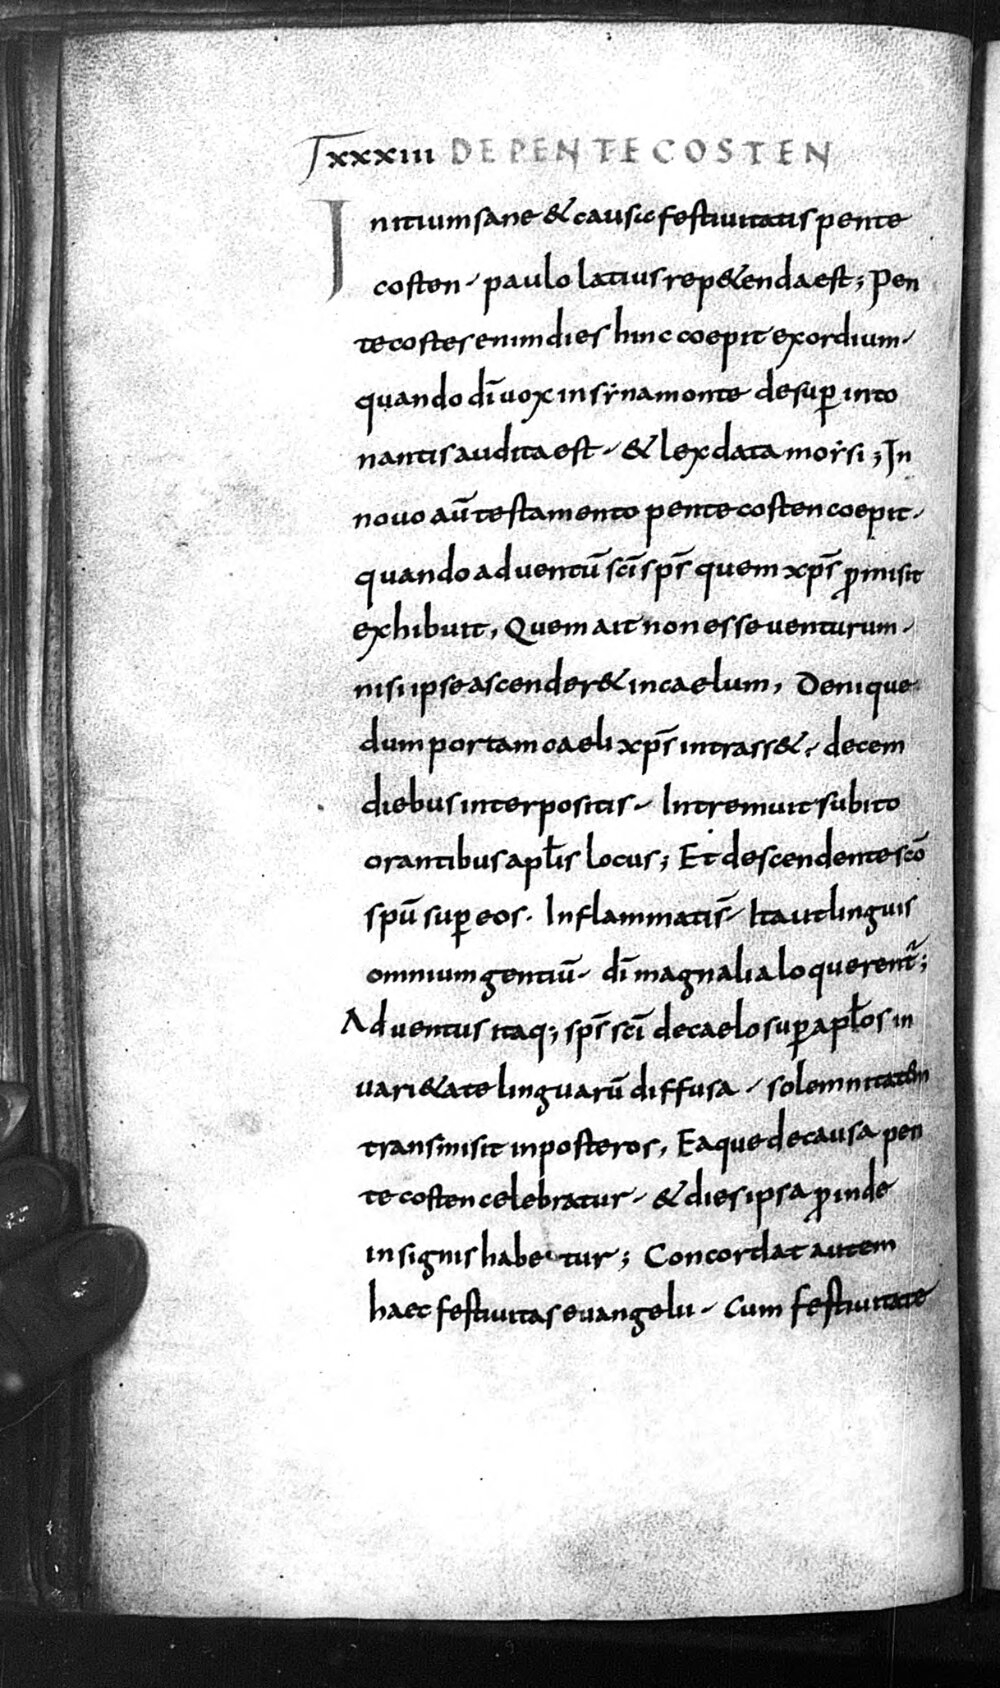 xxxiii DE PENTECOSTEN
Initium sane & causa festiuitatis pente
costen. paulo latius rep&enda est; Pen
tecostes enim dies hinc coepit exordium.
quando dī uox in syna monte desup̄ into
nantis audita est. & lex data moysi; In
nouo aū testamento pentecosten coepit.
quando aduentū sc̄i sp̄s quem xp̄s p̄misit
exhibuit, Quem ait non esse uenturum.
nisi ipse ascender& in caelum, Denique
dum portam caeli xp̄s intrass&. decem
diebus interpositis. Intremuit subito
orantibus apl̄is locus; Et descendente sc̄o
sp̄u sup̄ eos. Inflammatis. Ita ut linguis
omnium gentiū. dī magnalia loquerent̄;
Aduentus itaq; sp̄s sc̄i de caelo sup̄ apl̄os in
uari&ate linguarū diffusa. solemnitatem
transmisit in posteros, Eaque de causa pen
tecosten celebratur. & dies ipsa p̄inde
insignis habetur; Concordat autem
haec festiuitas euangelii. Cum festiuitate